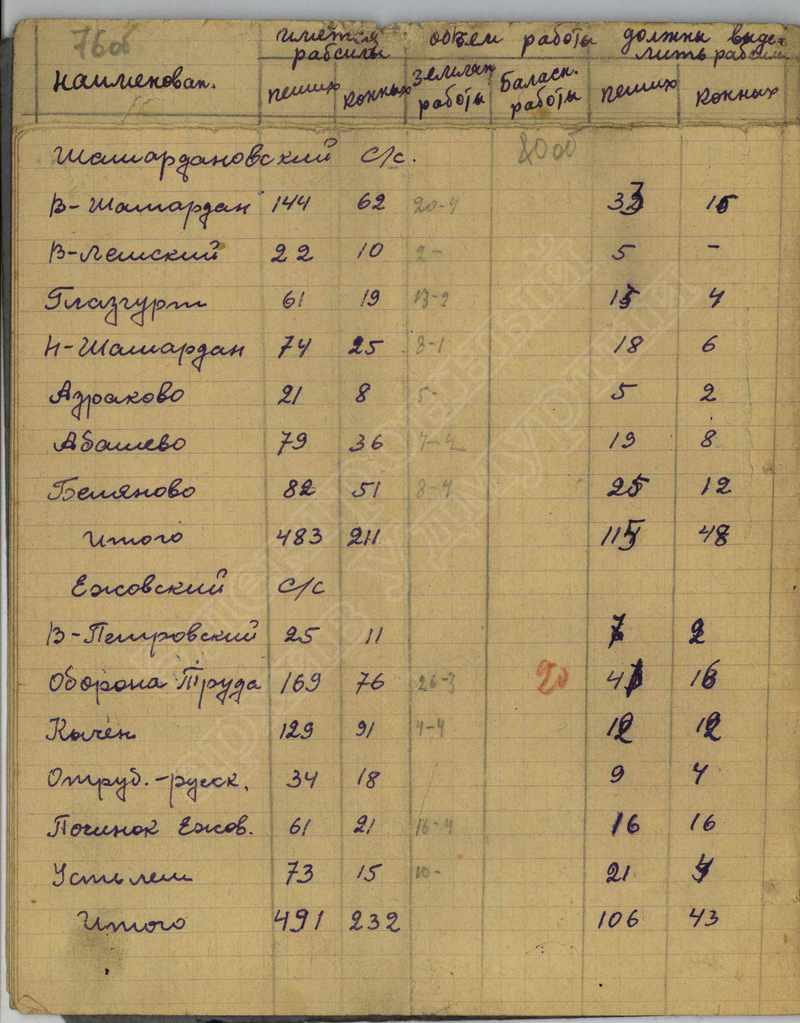 76об
имеется рабсилы объем работы должны выде-
лить рабсилы
наименован. пеших конных землян. работы баласн. работы пеших конных
Шамардановский с/с. 80об
В-Шамардан 144 62 20-4 33 15
В-Лемский 22 10 2- 5 -
Глазгурт 61 19 13-2 15 4
Н-Шамардан 74 25 3-1 18 6
Азраково 21 8 5- 5 2
Абашево 79 36 19 8
Бемяново 82 51 8-4 25 12
Итого 483 211 115 48
Ежовский с/с
В-Петровский 25 11 7 2
Оборона Труда 169 76 26-3 20 41 16
Качен 129 91 4-4 12 12
Отруб.-русск. 34 18 9 4
Починок Ежов. 61 21 16-4 16 16
Устьлем 73 15 10- 21 4
Итого 491 232 106 43